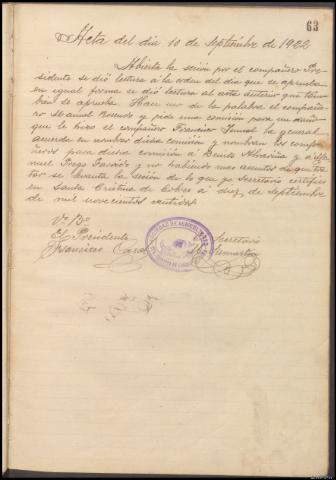 63
Acta del día 10 de Septiembre de 1922
Abierta la sesión por el compañero Pre-
sidente se dió lectura á la orden del dia que se aprueba
en igual forma se dió lectura al acta anterior que tam
bien se aprueba. Hace uso de la palabra el compañe
ro Manuel Rosendo y pide una comisión para un daño
que le hizo el compañero Francisco la general
acuerda en nombrar dicha comisión y nombran los compa
ñeros para dicha comisión á Benito y á Ma
nuel Prego y no habiendo mas asuntos de que tra
tar se levanta la sesión de lo que yo Secretario certifico
en Santa Cristina de Cobres a diez de septiembre
de mil novecientos veintidos
Vº Bº
El Presidente
El Secretario
Francisco